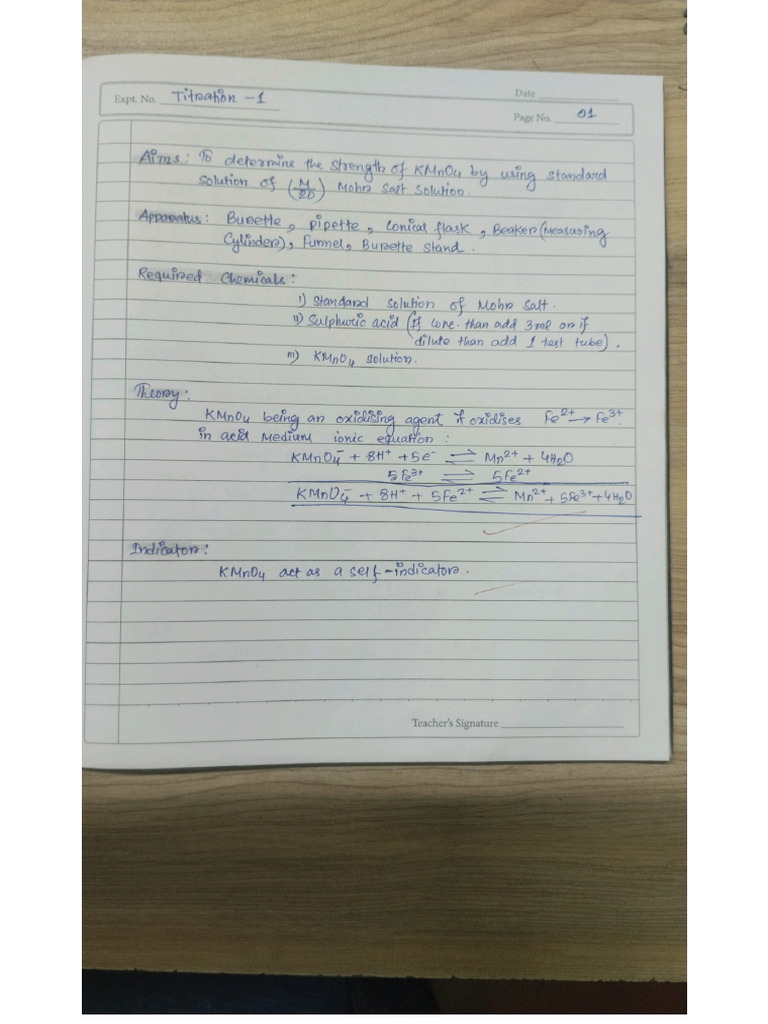 Expt. No. Titration - 1
Date
Page No. 01
Aims: To determine the strength of KMnO4 by using standard
solution of (M/20) Mohr salt solution.
Apparatus: Burette, pipette, conical flask, Beaker (Measuring
Cylinder), Funnel, Burette stand.
Required Chemicals:
i) Standard solution of Mohr salt.
ii) Sulphuric acid (If conc. than add 3ml or if
dilute than add 1 test tube).
iii) KMnO4 solution.
Theory:
KMnO4 being an oxidising agent it oxidises Fe²⁺ → Fe³⁺.
in acid medium ionic equation:
KMnO4⁻ + 8H⁺ + 5e⁻ ⇌ Mn²⁺ + 4H2O
5Fe³⁺ ⇌ 5Fe²⁺
KMnO4⁻ + 8H⁺ + 5Fe²⁺ ⇌ Mn²⁺ + 5Fe³⁺ + 4H2O
Indicator:
KMnO4 act as a self-indicator.
Teacher's Signature